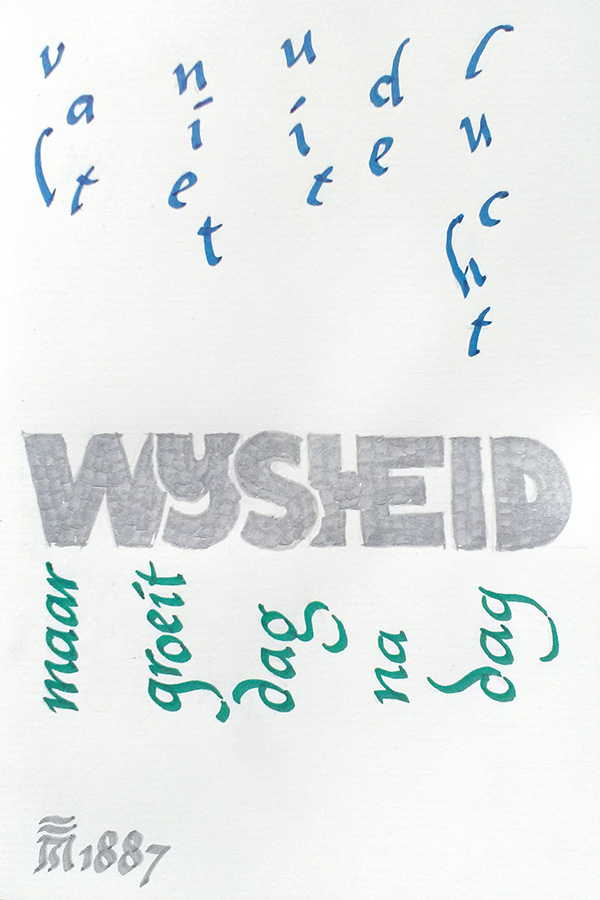 valt niet uit de lucht
WYSHEID
maar groeit dag na dag
M 1887